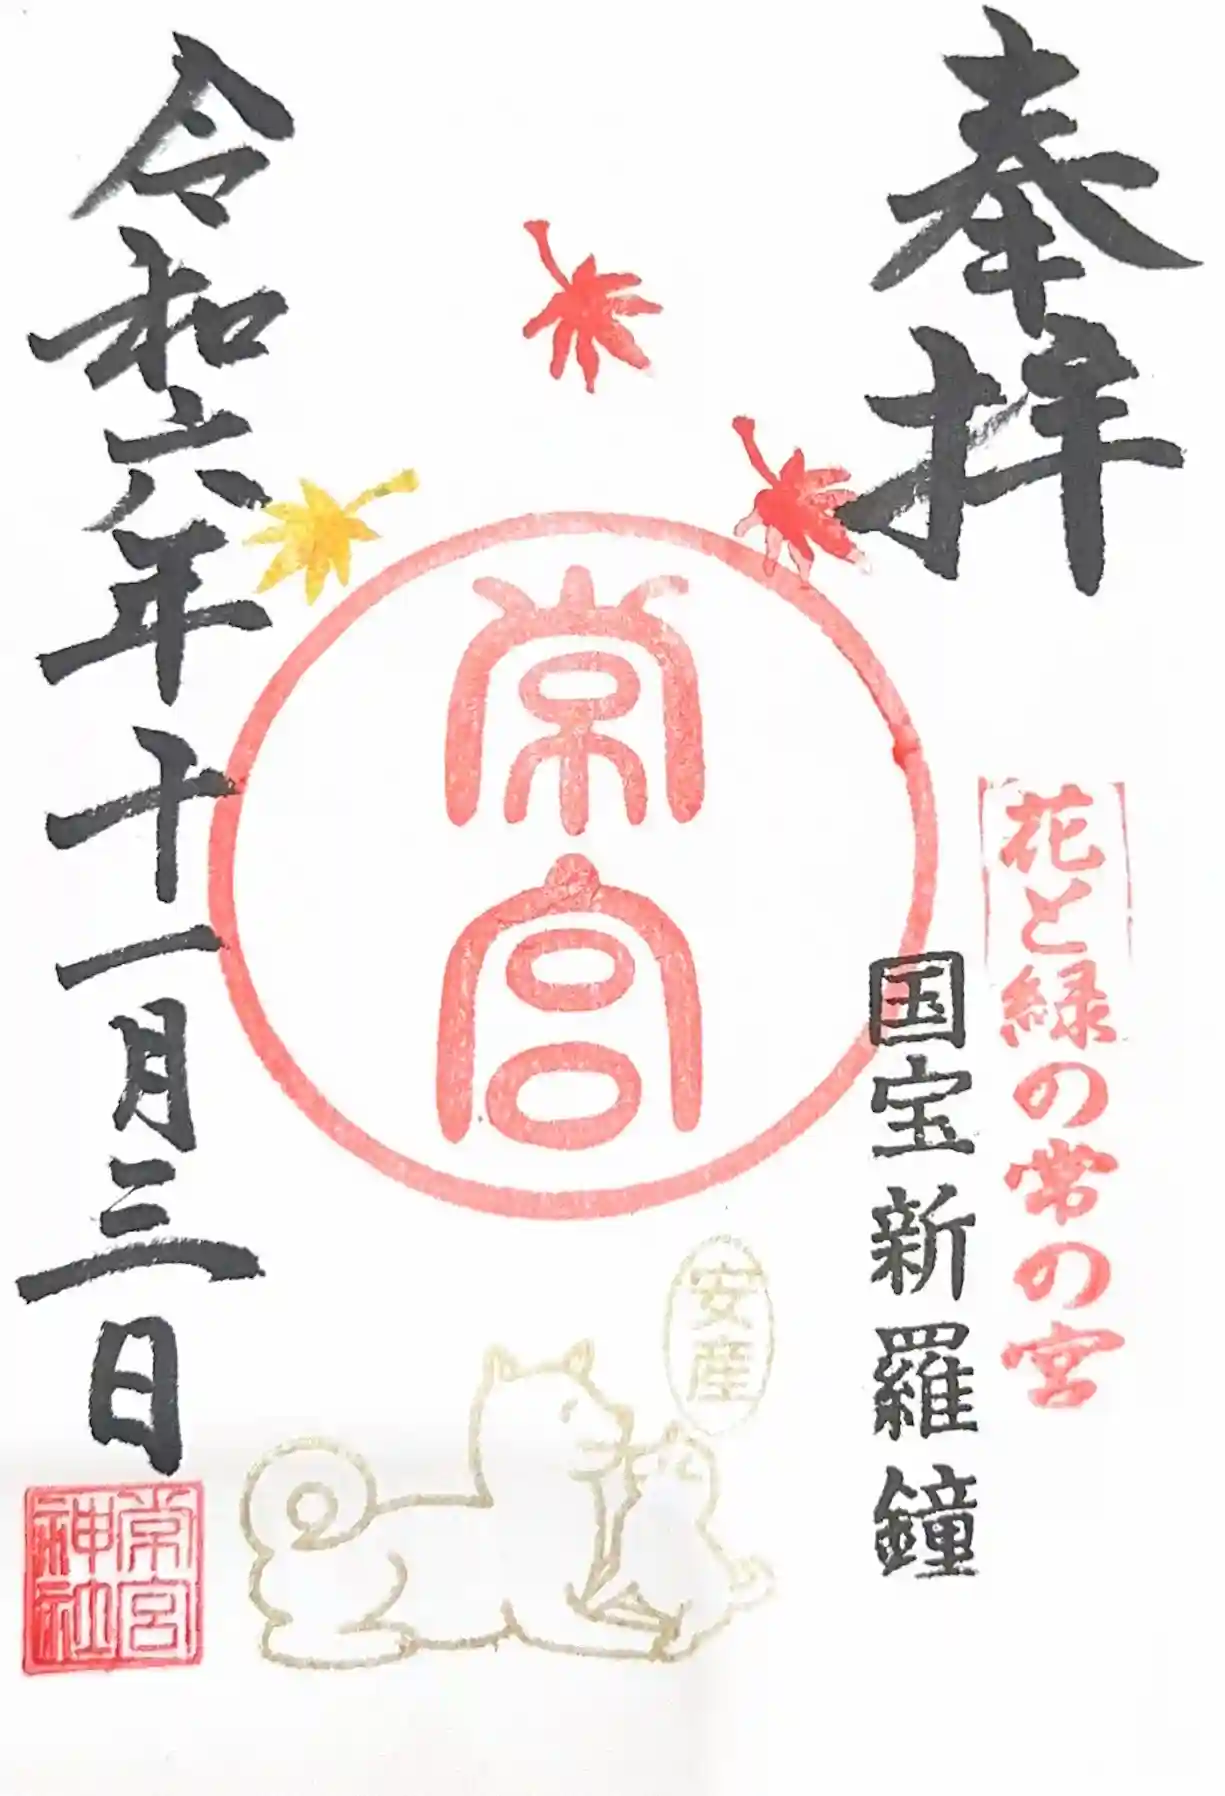 奉拝
花と緑の常の宮
国宝新羅鐘
常宮
安産
令和六年十一月三日
常宮
神社